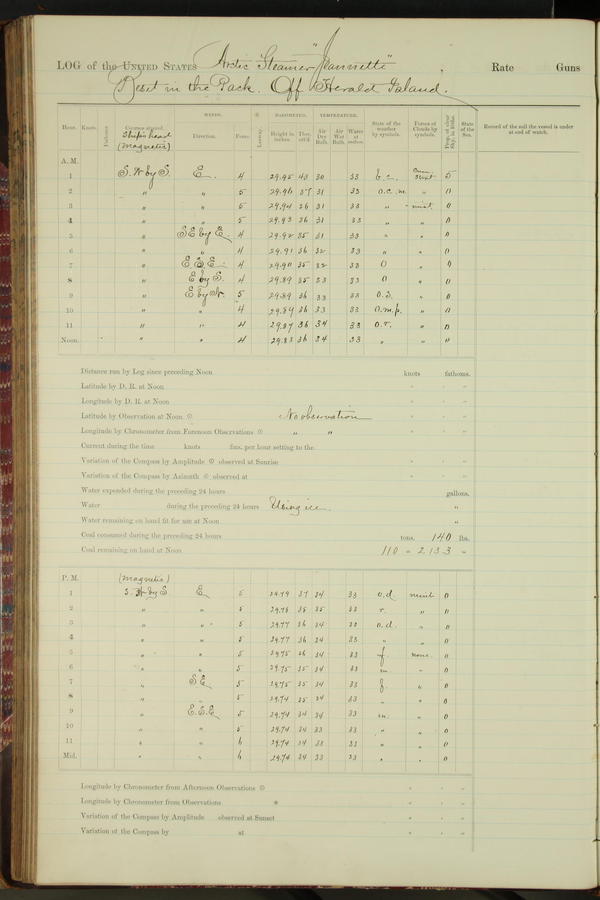 LOG of the UNITED STATES Arctic Steamer "Jeannette" Rate Guns
Beset in the Pack. Off Herald Island.
WINDS. BAROMETER. TEMPERATURE.
Hour. Knots. Fathoms. Courses steered. Ship's head (magnetic) Direction. Force. Leeway. Height in inches. Ther. att'd. Air Dry Bulb. Air Wet Bulb. Water at surface. State of the weather by symbols. Forms of Clouds by symbols. Prop. of clear Sky, in 10ths. State of the Sea. Record of the sail the vessel is under at end of watch.
A. M.
1 S. W by S. E. 4 29.95 43 30 33 b.c. 5
2 " " 5 29.96 37 31 33 o.c.m. " 0
3 " " 5 29.94 36 31 33 " mist. 0
4 " " 5 29.93 36 31 33 " " 0
5 " SE by E. 4 29.92 35 31 33 " " 0
6 " " 4 29.91 36 32 33 " " 0
7 " E.S.E. 4 29.90 35 32 33 0 "
8 " E by S. 4 29.89 35 33 33 0 " 0
9 " E by N. 5 29.89 36 33 33 o.s. " 0
10 " " 4 29.89 36 33 33 o.m.p. " 0
11 " " 4 29.87 36 34 33 o.r. " 0
Noon. " " 4 29.83 36 34 33 " " 0
Distance run by Log since preceding Noon knots fathoms.
Latitude by D. R. at Noon ° ' "
Longitude by D. R. at Noon ° ' "
Latitude by Observation at Noon ☉ No observation
Longitude by Chronometer from Forenoon Observations ☉ " " ° ' "
Current during the time knots fms. per hour setting to the
Variation of the Compass by Amplitude ☉ observed at Sunrise ° ' "
Variation of the Compass by Azimuth ☉ observed at ° ' "
Water expended during the preceding 24 hours gallons.
Water during the preceding 24 hours Using ice. "
Water remaining on hand fit for use at Noon "
Coal consumed during the preceding 24 hours tons, 140 lbs.
Coal remaining on hand at Noon 110 " 2133 "
P. M. (magnetic)
1 S. W by S E. 5 29.79 37 34 33 o.d. mist 0
2 " " 5 29.78 35 35 33 r. " 0
3 " " 5 29.77 36 34 33 o.d. " 0
4 " " 5 29.77 36 34 33 " " 0
5 " " 5 29.75 36 34 33 f. none. 0
6 " " 5 29.75 35 34 33 m " 0
7 " SE 5 29.75 35 34 33 f. " 0
8 " " 5 29.74 35 34 33 " " 0
9 " E.S.E 5 29.74 34 34 33 m. " 0
10 " " 5 29.74 34 33 33 " " 0
11 " " 6 29.74 34 33 33 " " 0
Mid. " " 6 29.74 34 33 33 " " 0
Longitude by Chronometer from Afternoon Observations ☉ ° ' "
Longitude by Chronometer from Observations * ° ' "
Variation of the Compass by Amplitude observed at Sunset ° ' "
Variation of the Compass by at ° ' "